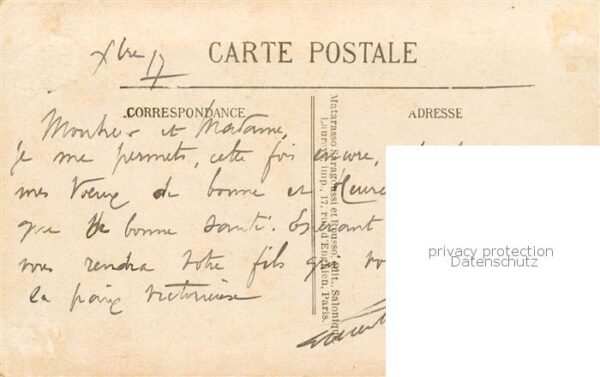 Xbre 17
CARTE POSTALE
CORRESPONDANCE
ADRESSE
Monsieur et Madame,
je me permets, cette fois encore,
mes voeux de bonne et Heure
que de bonne santé. Espérant
vous rendra votre fils que vo
la paix victorieuse
Matarasso Saragoussi et Rousso, édit., Salonique
Laureys, imp., 17, rue d'Enghien, Paris.
privacy protection
Datenschutz